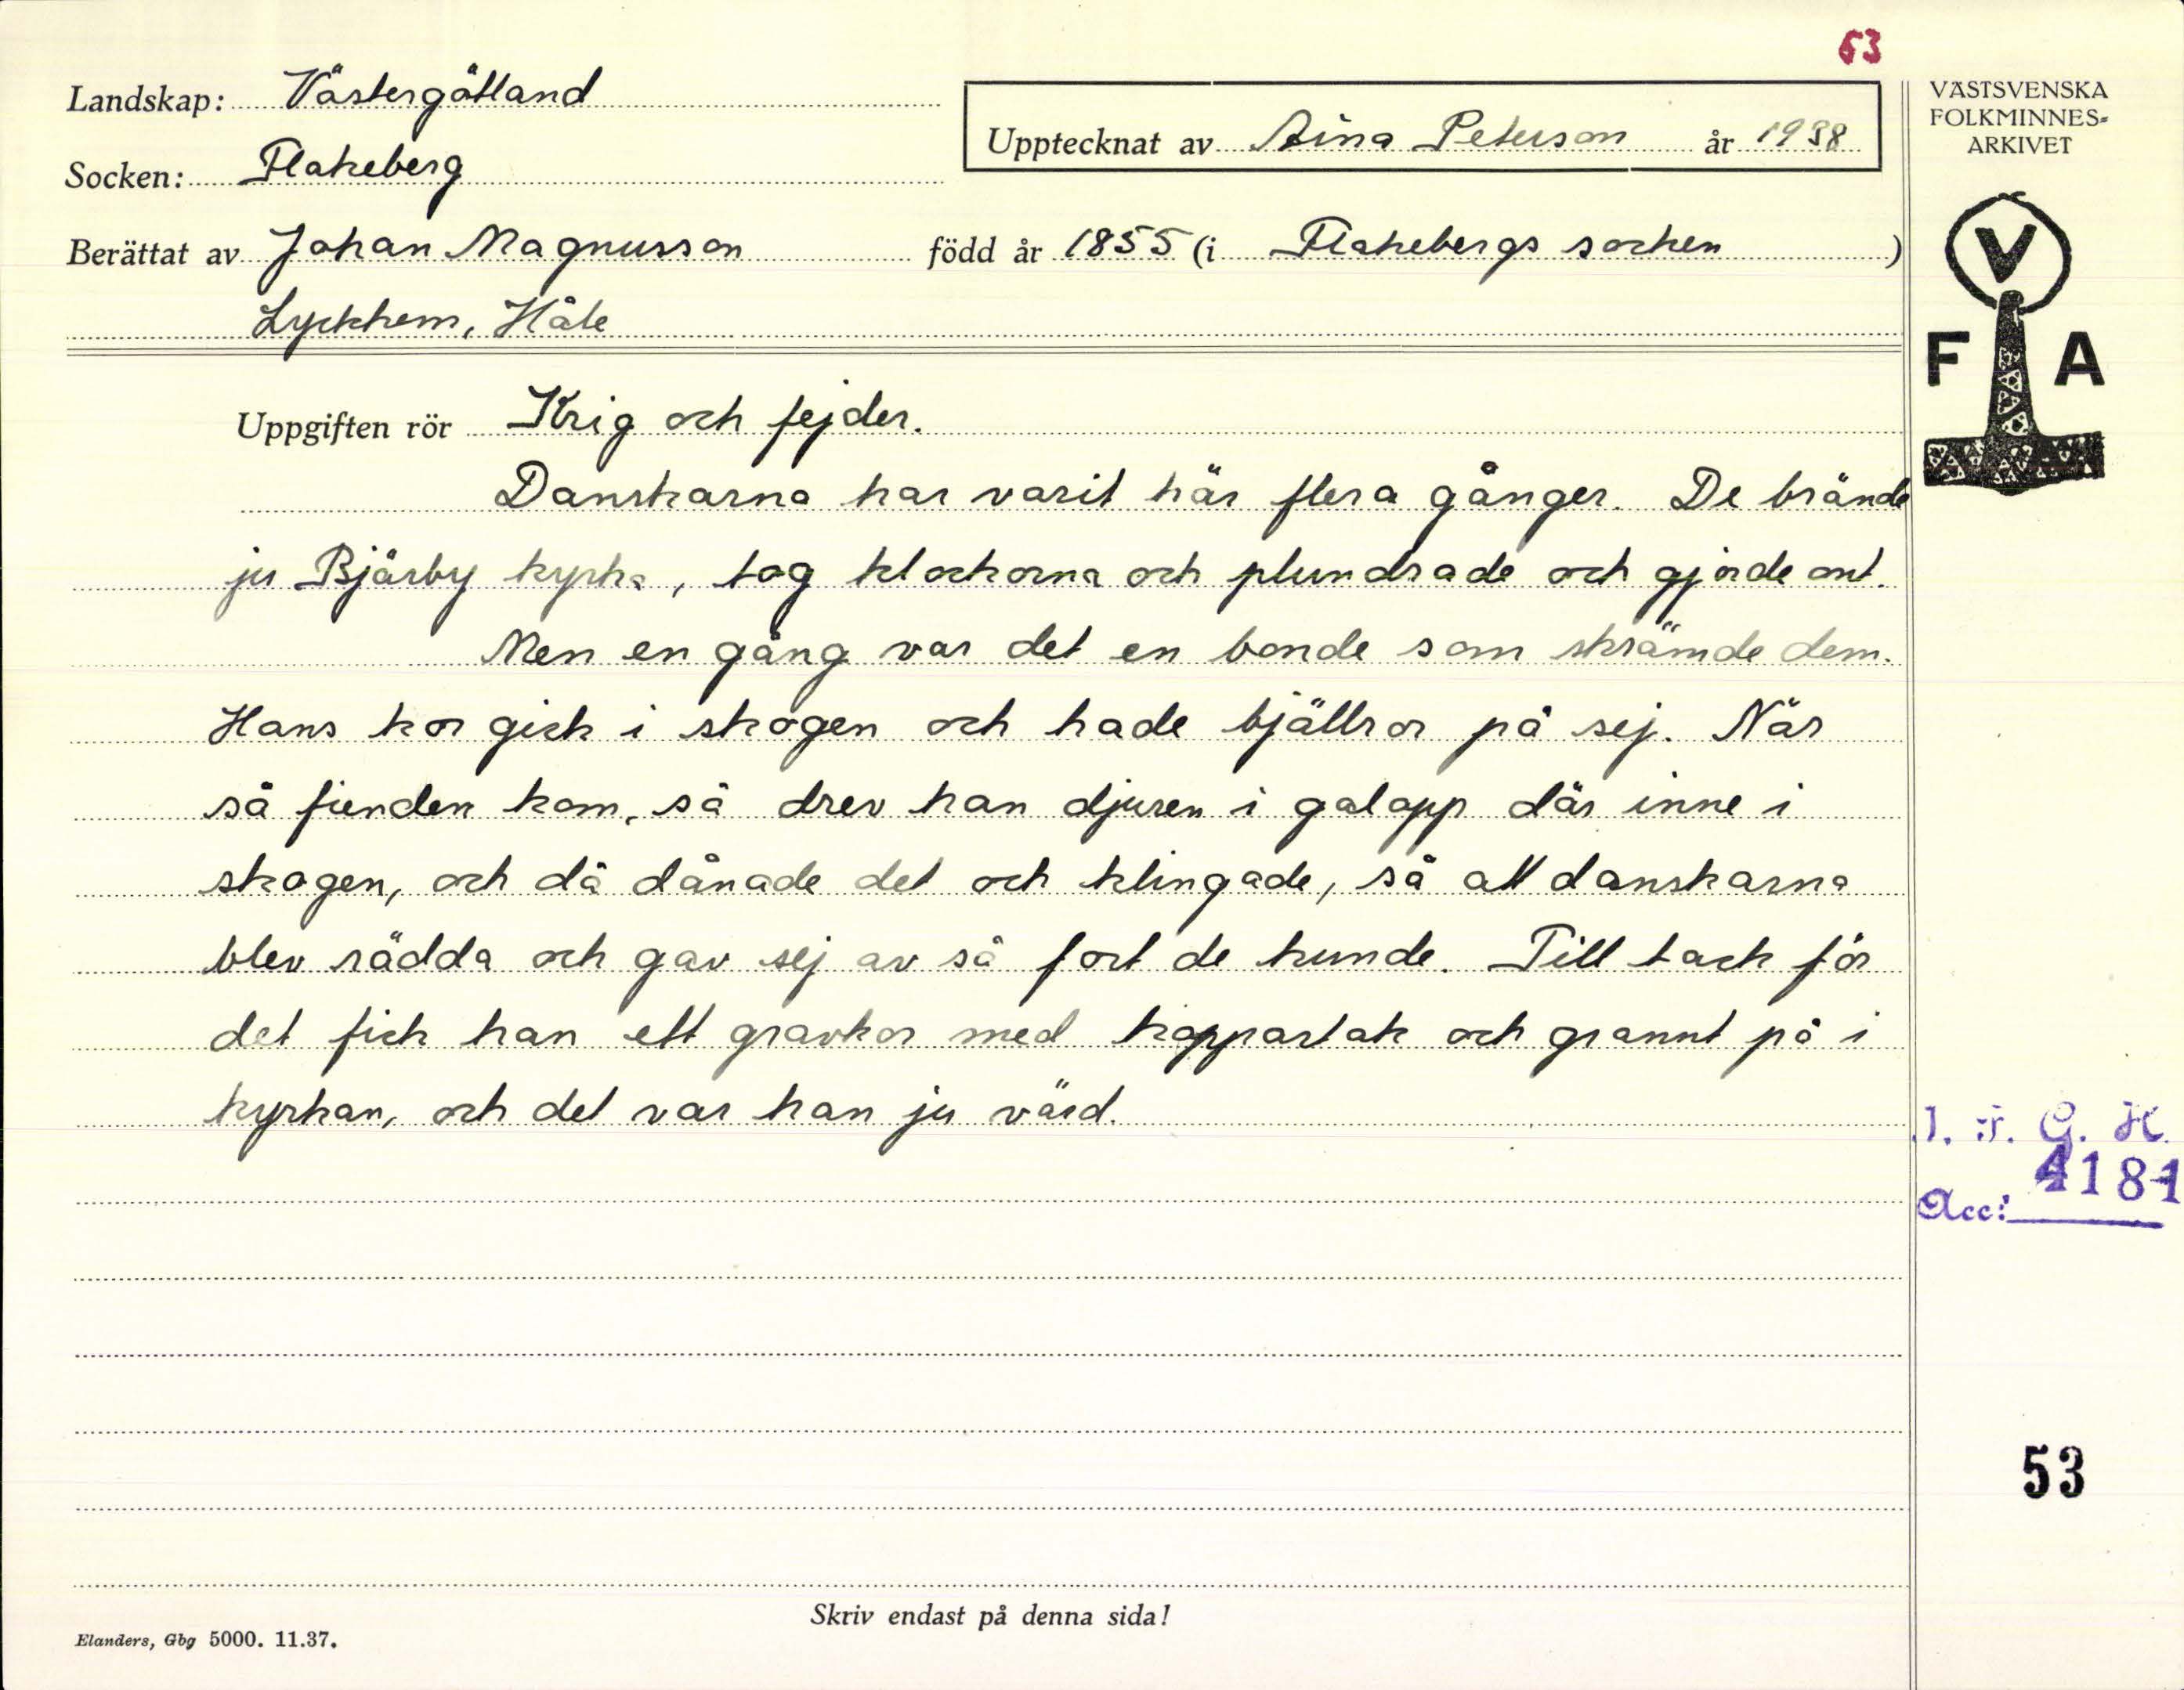 53
Landskap: Västergötland
Upptecknat av Aina Peterson år 1938
VÄSTSVENSKA
FOLKMINNES-
ARKIVET
Socken: Flakeberg
Berättat av Johan Magnusson född år 1855 (i Flakebergs socken)
Lyckhem, Håle
V
F A
Uppgiften rör Krig och fejder.
Danskarna har varit här flera gånger. De brände
ju Bjärby kyrka, tog klockorna och plundrade och gjorde ont.
Men en gång var det en bonde som skrämde dem.
Hans kor gick i skogen och hade bjällror på sej. När
så fienden kom, så drev han djuren i galopp där inne i
skogen, och då dånade det och klingade, så att danskarna
blev rädda och gav sej av så fort de kunde. Till tack för
det fick han ett gravkor med koppartak och grannt på i
kyrkan, och det var han ju värd.
I. F. G. H.
Acc: 4181
53
Skriv endast på denna sida!
Elanders, Gbg 5000. 11.37.